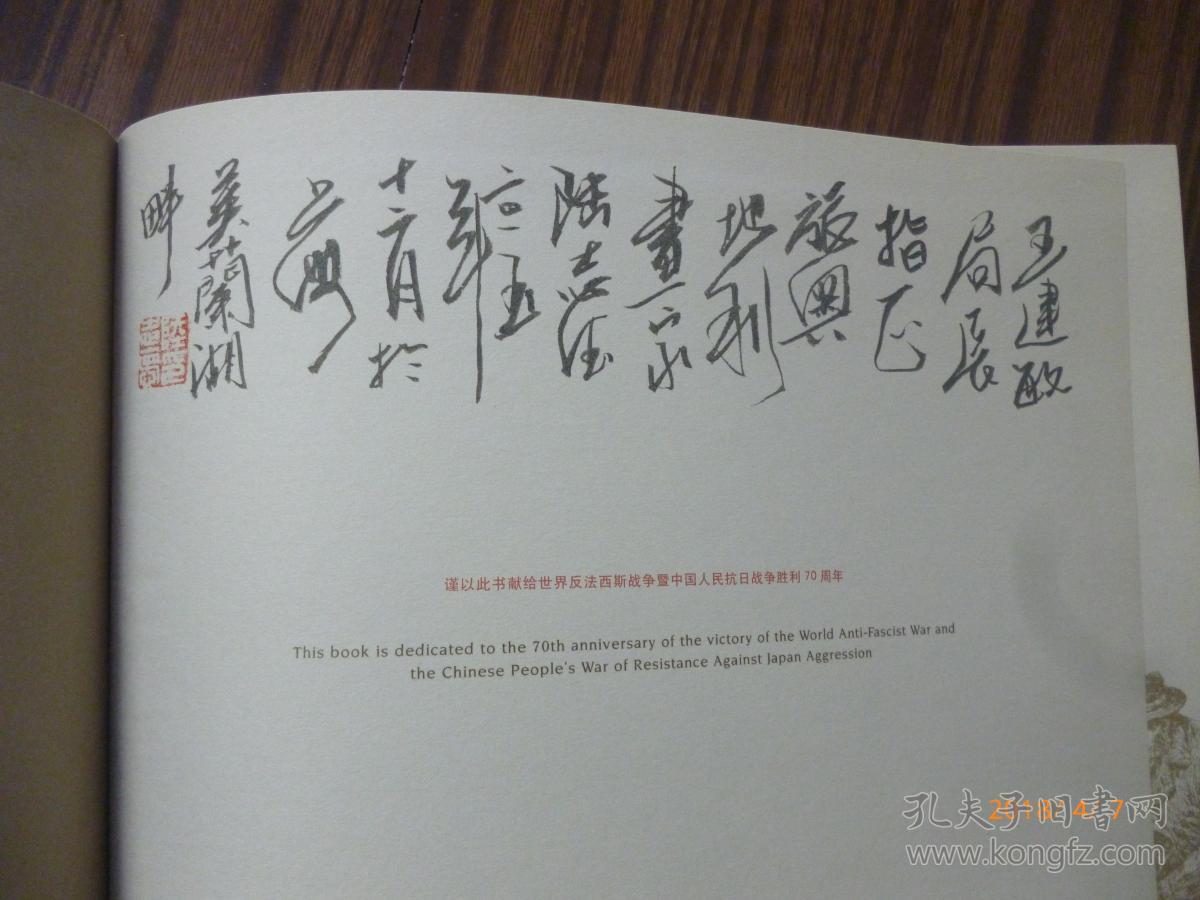 王建敏
局長
指正
旅奧
地利
書画家
陆志德
二〇一五
年
十二月於
上海
美蘭湖
畔
谨以此书献给世界反法西斯战争暨中国人民抗日战争胜利70周年
This book is dedicated to the 70th anniversary of the victory of the World Anti-Fascist War and
the Chinese People's War of Resistance Against Japan Aggression
孔夫子旧书网
www.kongfz.com